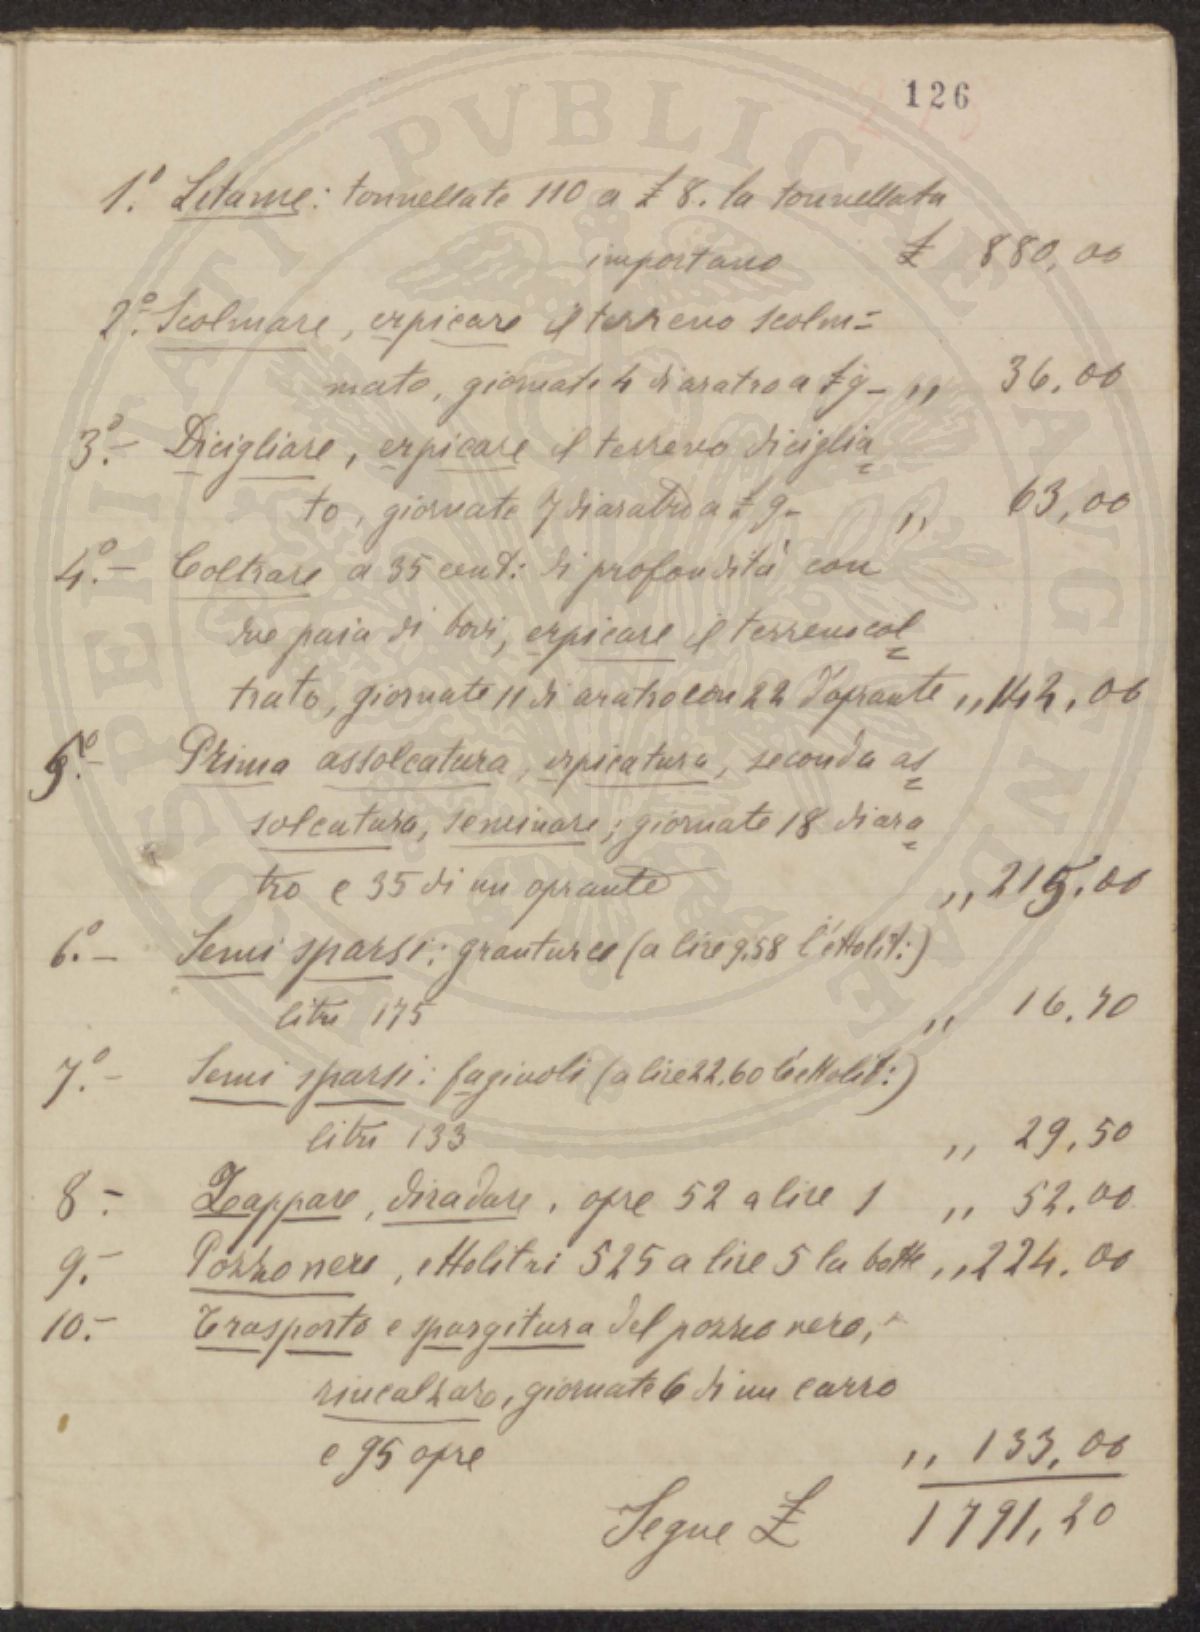 126
1.º Letame: tonnellate 110 a £ 8. la tonnellata
importano £ 880,00
2.º Scolmare, erpicare il terreno scolm=
mato, giornate 4 di aratro a £ 9- ,, 36,00
3.º- Dicigliare, erpicare il terreno diciglia=
to, giornate 7 di aratro a £ 9- ,, 63,00
4.º- Coltrare a 35 cent: di profondità con
due paia di bovi, erpicare il terreno col=
trato, giornate 11 di aratro con 22 d'oprante ,, 142,00
5.º- Prima assolcatura, erpicatura, seconda as=
solcatura, seminare; giornate 18 di ara=
tro e 35 di un oprante ,, 215,00
6.º- Semi sparsi: granturco (a lire 9,58 l'ettolit:)
litri 175 ,, 16,70
7.º- Semi sparsi: fagiuoli (a lire 22,60 l'ettolit:)
litri 133 ,, 29,50
8.- Zappare, diradare, opre 52 a lire 1 ,, 52,00
9.- Pozzo nero, ettolitri 525 a lire 5 la botte ,, 224,00
10.- Trasporto e spargitura del pozzo nero,
rincalzare, giornate 6 di un carro
e 95 opre ,, 133,00
Segue £ 1791,20
PROSPERITATI PVBLICAE AVGENDAE